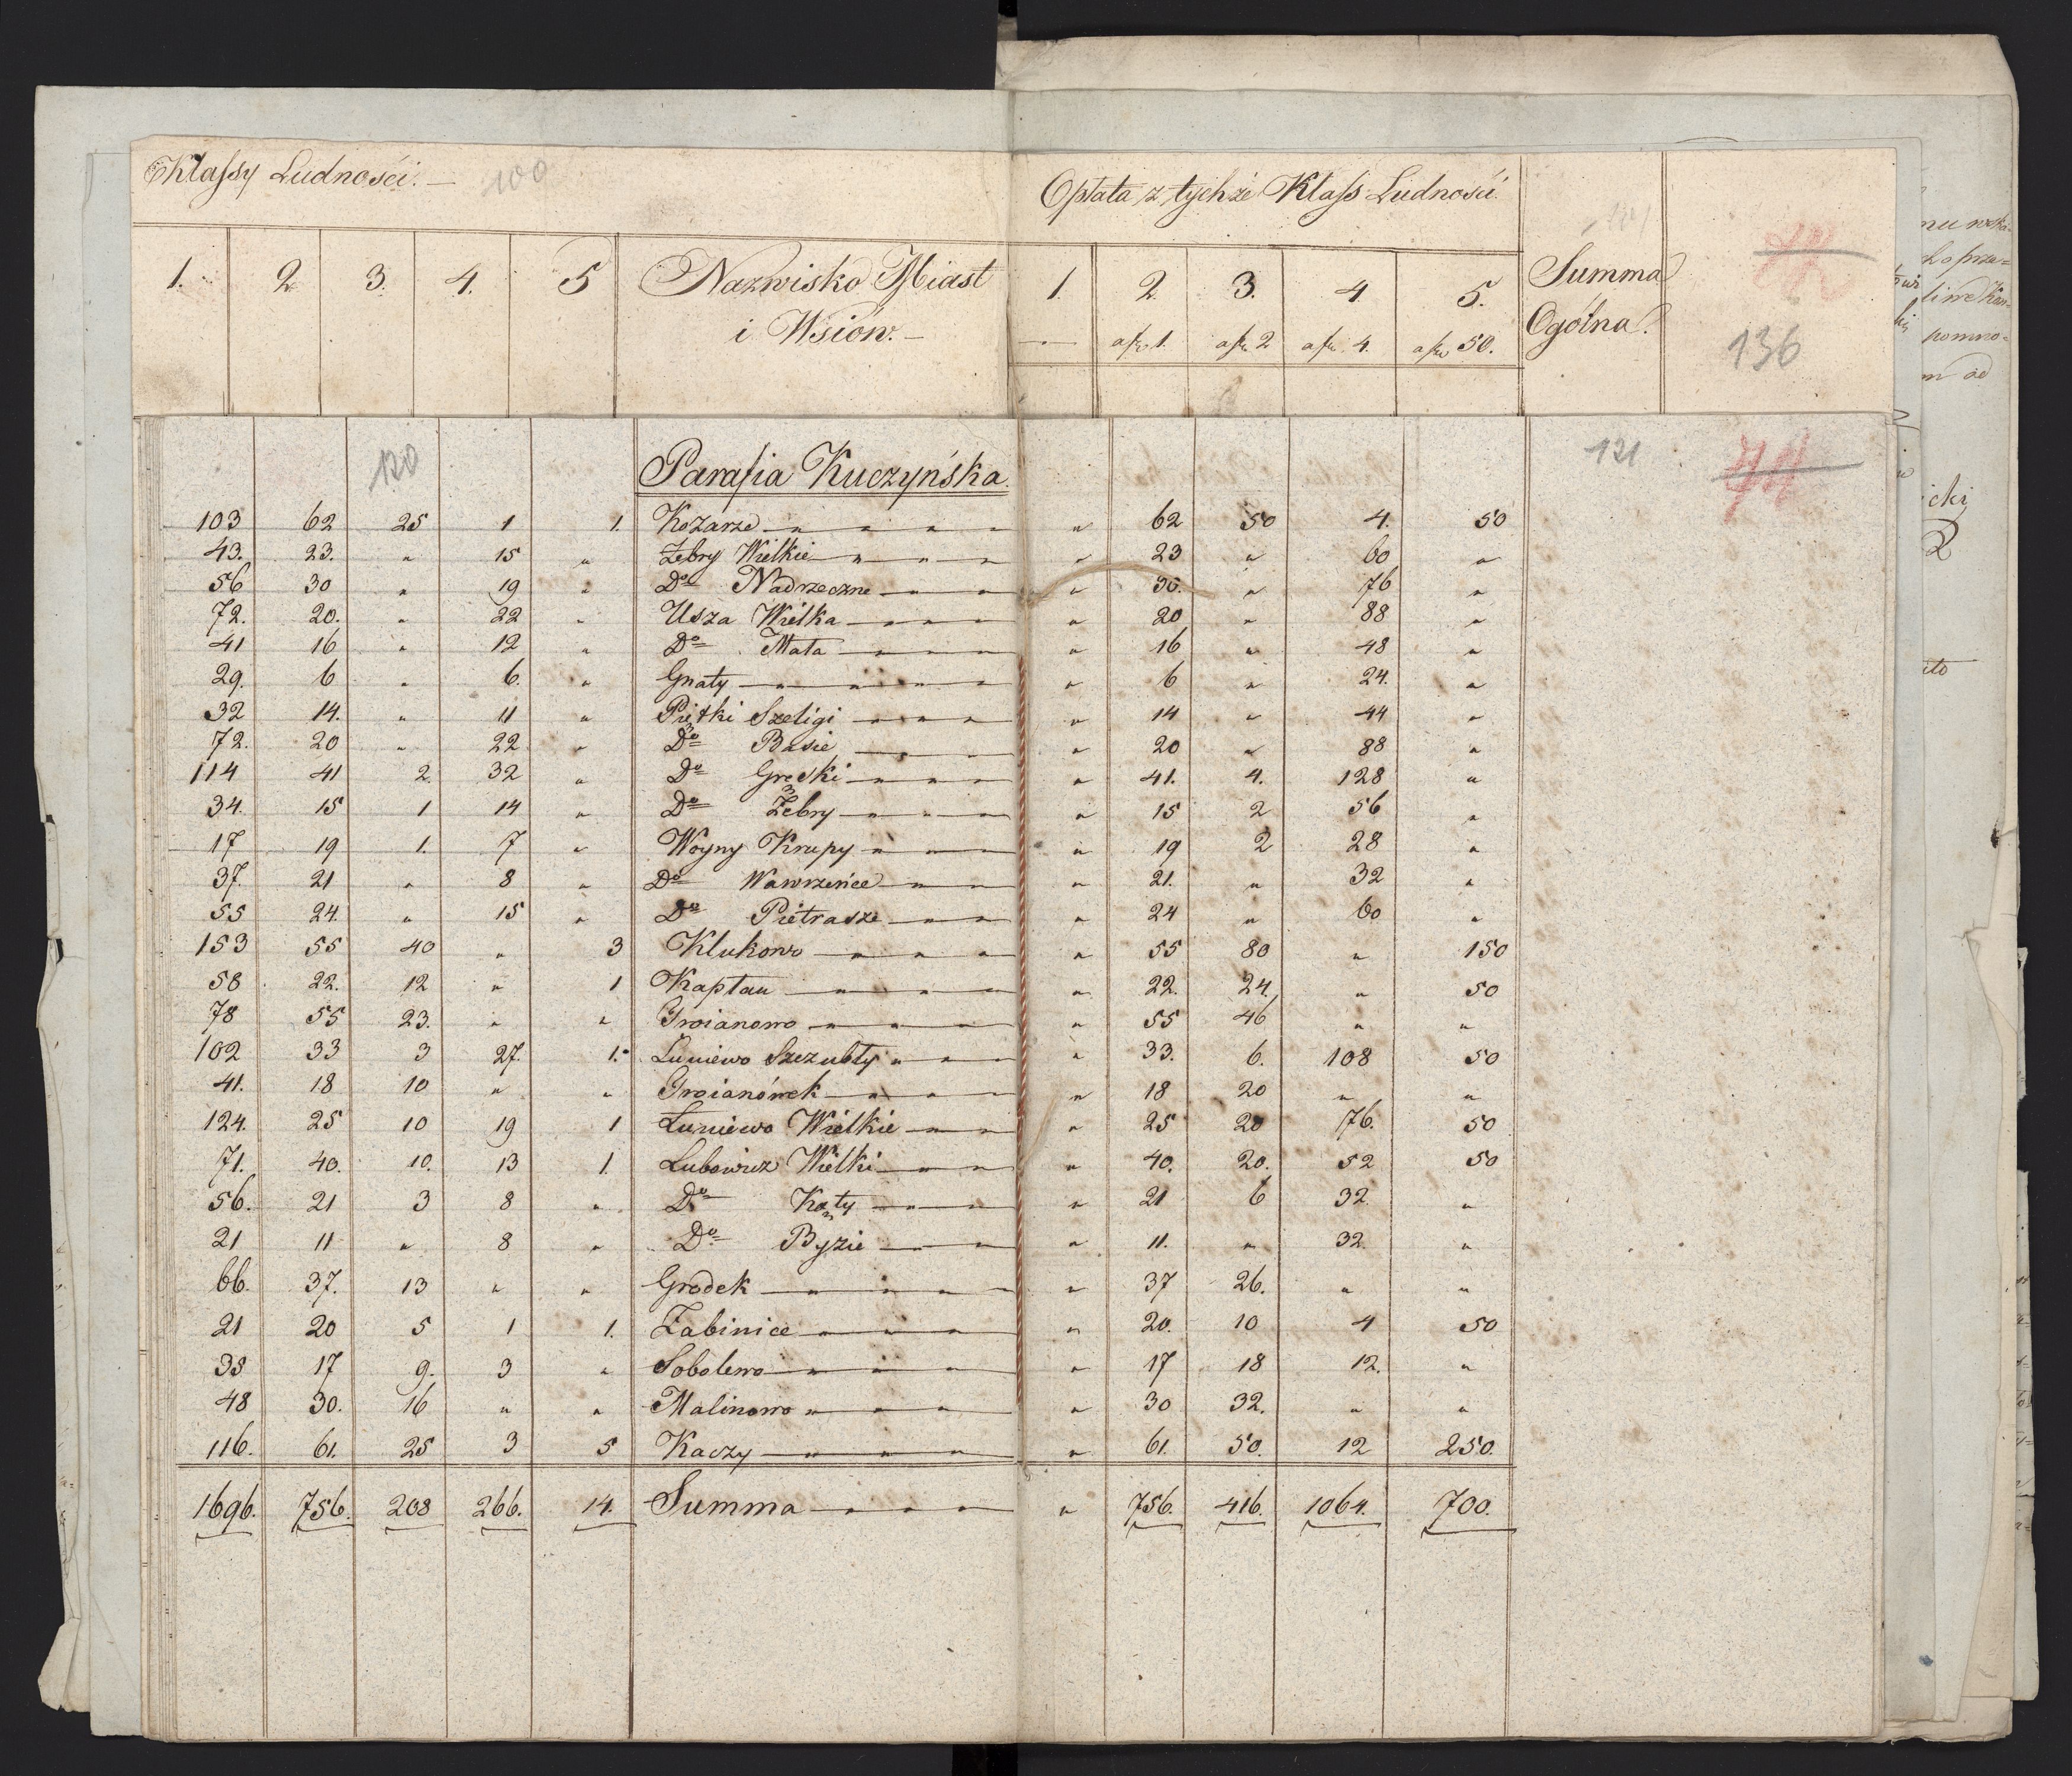 Klassy Ludności. — 100
Opłata z tychże Klass Ludności.
1. 2 3. 4. 5 Nazwisko Miast i Wsiów. — 1. 2 3. 4 5. Summa Ogólna. 136
a fl. 1. a fl. 2 a fl. 4. a fl. 50.
120 Parafia Kuczyńska. 121 74
103 62 25 1 1. Kozarze — " " " " " 62 50 4. 50
43. 23. " 15 " Zebry Wielkie — " " " " 23 " 60 "
56 30 " 19 " Do Nadrzeczne — " " " 30. " 76 "
72. 20. " 22 " Usza Wielka — " " " " 20 " 88 "
41 16 " 12 " Do Mała — " " " " 16 " 48 "
29. 6 " 6. " Gnaty — " " " " " 6 " 24. "
32 14. " 11 " Piętki Szeligi — " " " " 14 " 44 "
72. 20 " 22 " Do Basie — " " " " 20 " 88 "
114 41 2. 32 " Do Gręski — " " " " 41. 4. 128 "
34. 15 1 14 " Do Żebry — " " " " 15 2 56 "
17 19 1. 7 " Woyny Krupy — " " " " 19 2 28 "
37. 21 " 8 " Do Wawrzeńce — " " " 21. " 32 "
55 24. " 15 " Do Pietrasze — " " " 24 " 60 "
153 55 40 " 3 Klukowo — " " " " 55 80 " 150
58 22. 12 " 1 Kapłan — " " " " 22. 24. " 50
78 55 23. " " Troianowo — " " " " 55 46 " "
102 33 3 27. 1. Luniewo Szczubły " " " " 33. 6. 108 50
41. 18 10 " " Troianówek — " " " " 18 20 " "
124. 25 10 19 1 Łuniewo Wielkie — " " " 25 20 76. 50
71. 40. 10. 13 1. Lubowicz Wielki — " " " 40. 20. 52 50
56. 21 3 8 " Do Kąty — " " " " 21 6 32. "
21 11 " 8 " Do Byzie — " " " 11. " 32. "
66. 37. 13 " " Grodek — " " " " " 37 26. " "
21 20 5 1 1. Żabinice — " " " " 20. 10 4 50
35 17 9. 3 " Sobolewo — " " " " 17 18 12. "
48 30. 16 " " Malinowo — " " " " 30 32. " "
116. 61. 25 3 5 Kaczy — " " " " 61. 50. 12 250.
1696. 756. 208 266. 14. Summa — " " " " 756. 416. 1064. 700.